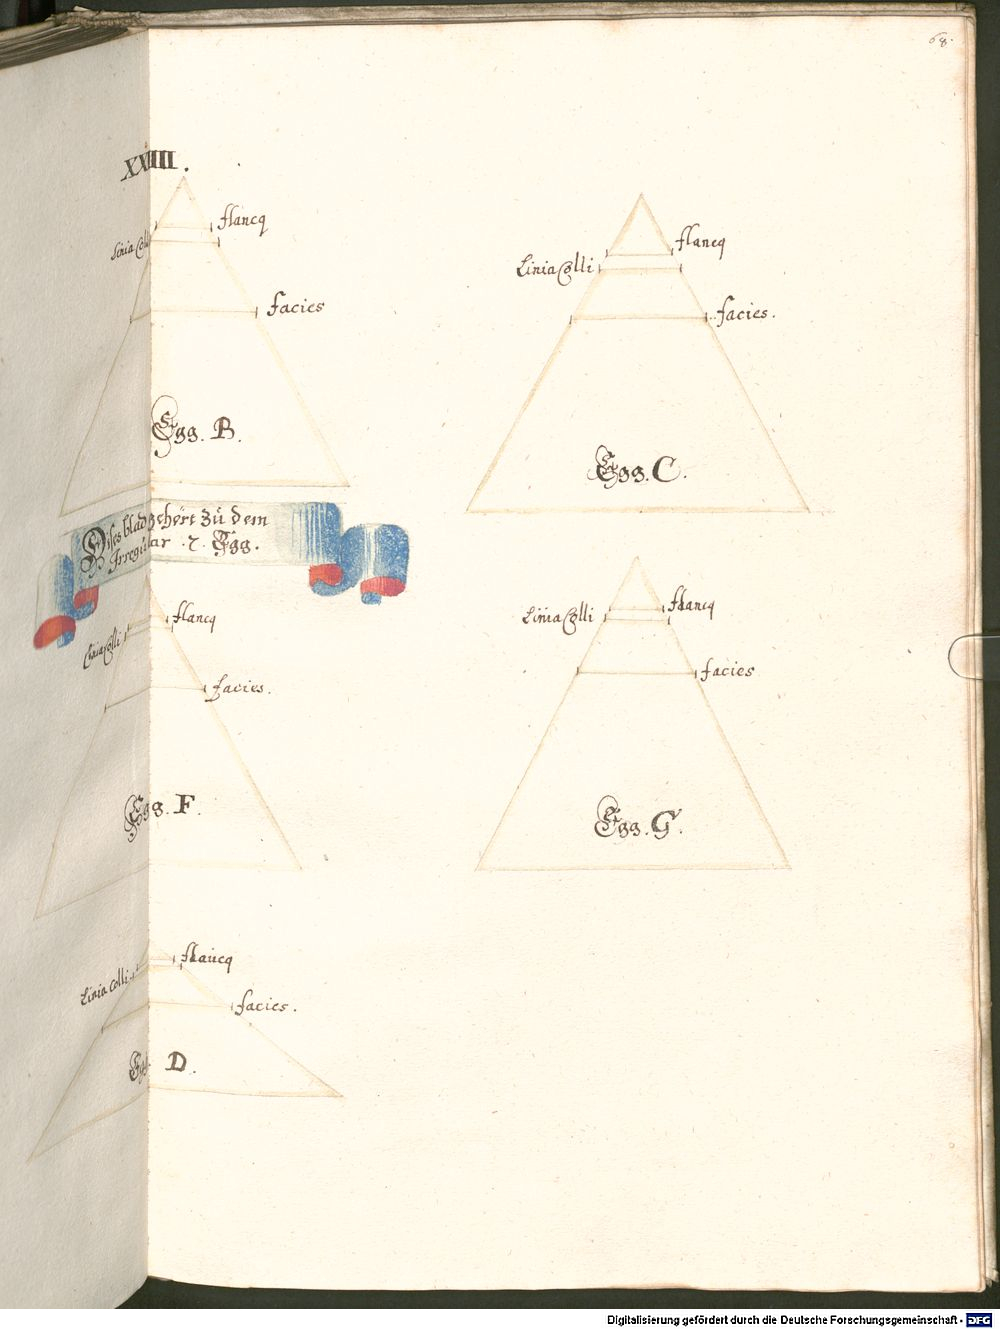 68.
XXIIII.
flancq
Linia Colli
facies
Egg. B.
flancq
Linia Colli
facies.
Egg. C.
Dises blad gehört zů dem
Irregular .7. Egg.
flancq
Linia Colli
facies.
Egg. F.
flancq
Linia Colli
facies
Egg. G.
flancq
Linia Colli
facies.
Egg. D.
Digitalisierung gefördert durch die Deutsche Forschungsgemeinschaft - DFG